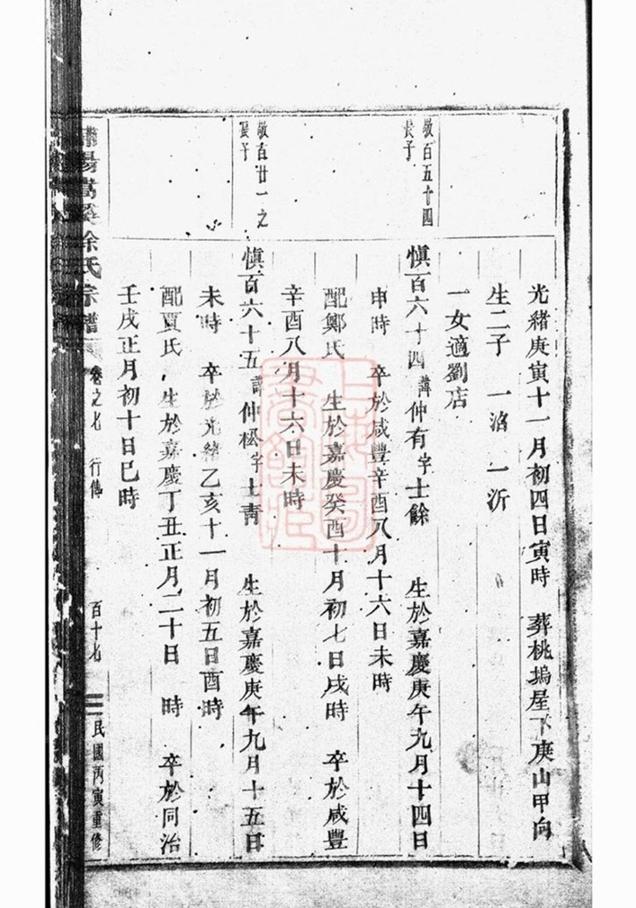 光緒庚寅十一月初四日寅時 葬桃塢屋下庚山甲向
生二子 一浛 一沂
一女適劉店
敬百五十四
長子
慎百六十四諱仲有字士餘 生於嘉慶庚午九月十四日
申時 卒於咸豐辛酉八月十六日未時
配鄭氏 生於嘉慶癸酉十月初七日戌時 卒於咸豐
辛酉八月十六日未時
敬百廿一之
長子
慎百六十五諱仲松字士青 生於嘉慶庚午九月十五日
未時 卒於光緒乙亥十一月初五日酉時
配賈氏 生於嘉慶丁丑正月二十日 時 卒於同治
壬戌正月初十日巳時
陽嵩溪徐氏宗譜 卷之七 行傳 百十七 民國丙寅重修